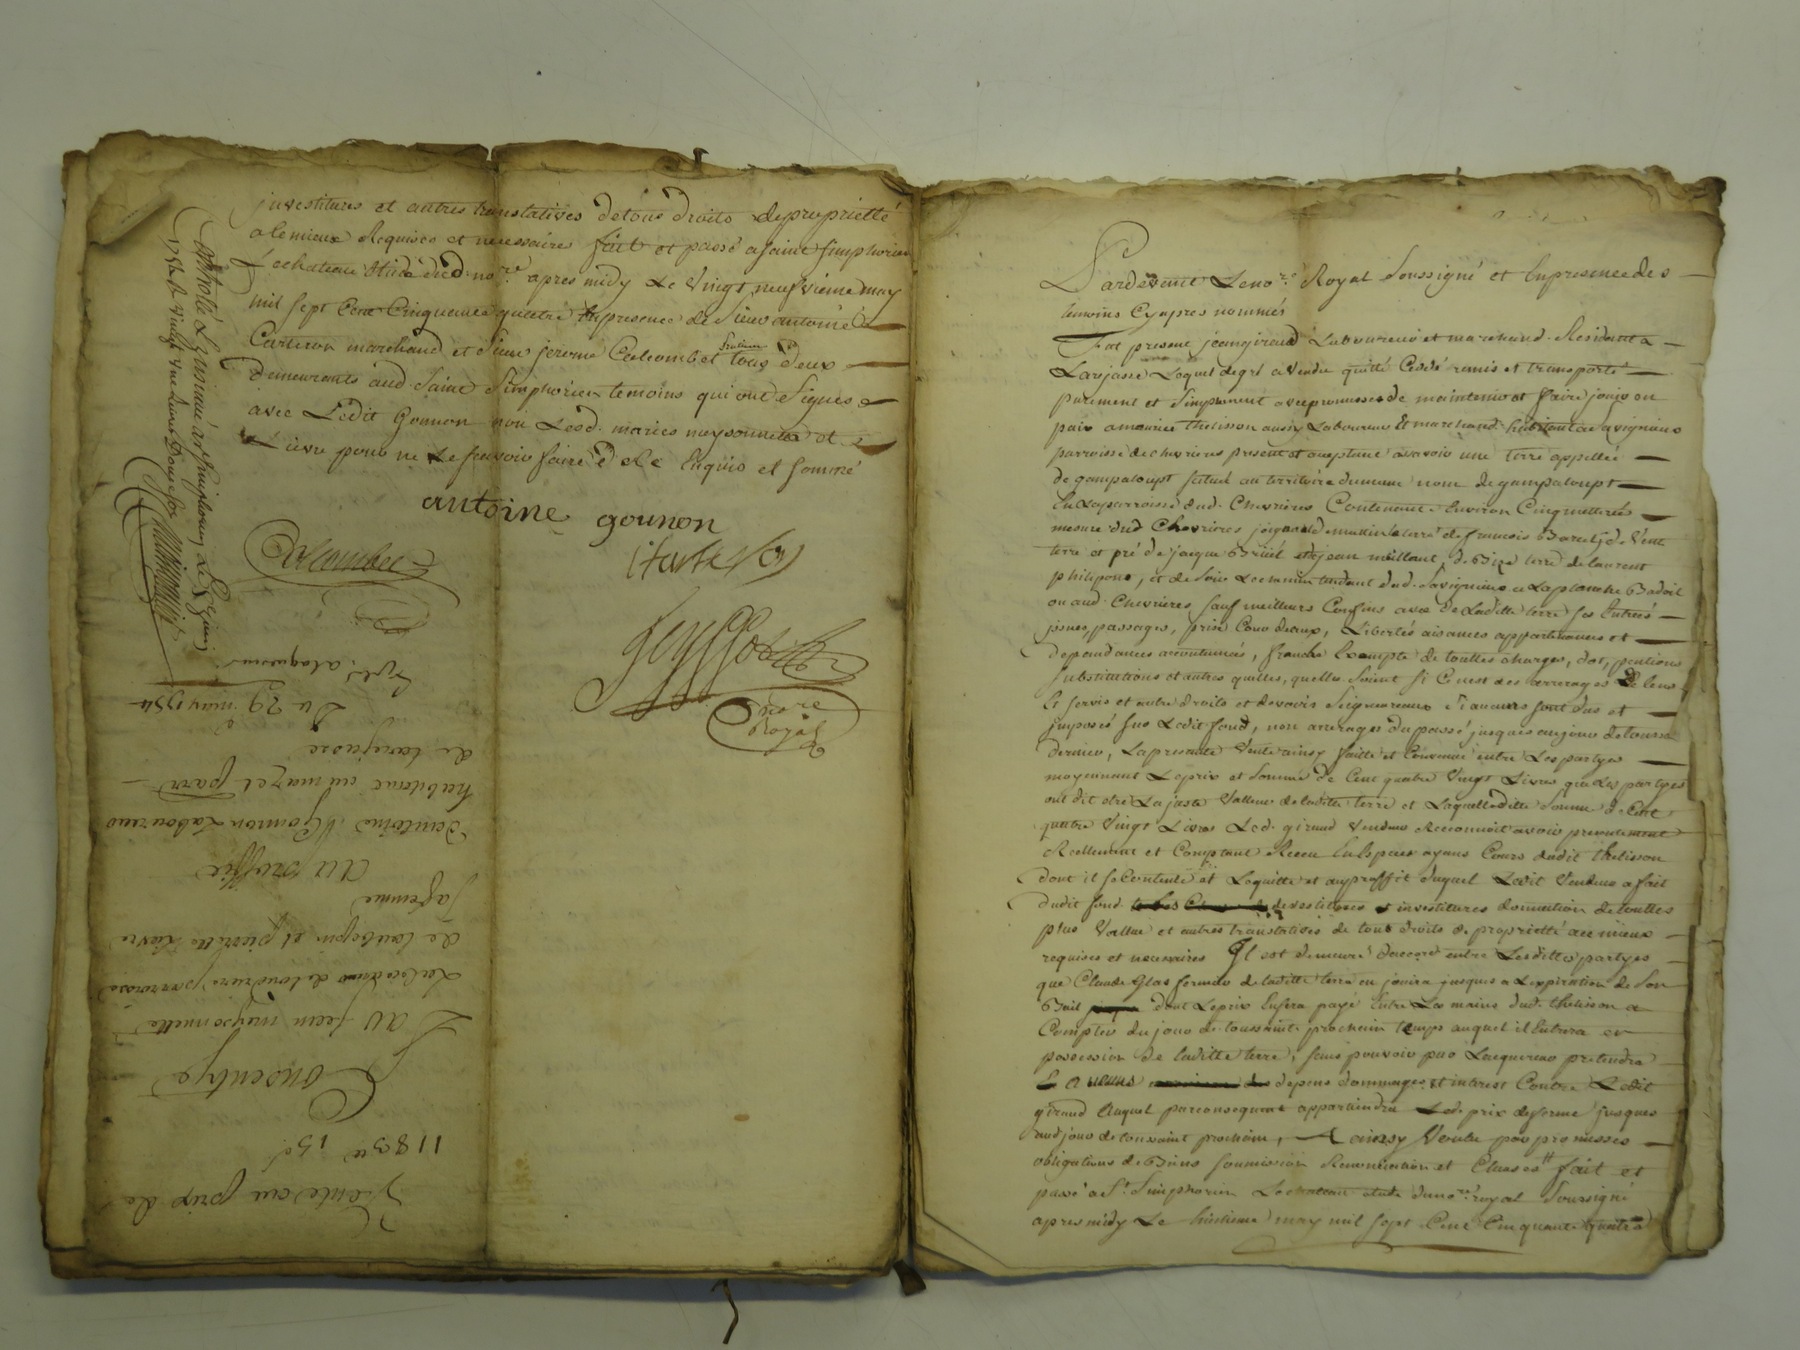 investitures et autres translatives de tous droits de proprietté
alemieux Requises et necessaires fait et passé a saint simphorien
Lechateau Etude dud. no.re apres midy Le vingt neufvieme may
mil sept Cent Cinquante quattre En presence de Sieur antoine
Carteron marchand et Sieur jerome Colcombet tous deux
demeurants aud. Saint Simphorien temoins qui ont Signes
avec Ledit Gounon non Lesd. mariés meysonnette et
Lievre pour ne Le scavoir faire de ce Enquis et sommé
antoine gounon
Colcombet
notre
Royal
Controllé
Vente au prix de
1183.tt 15.s
Consentye
Par jean meysonnette
paroisse
de et pierrette Lievre
Sa femme
Au proffit
D'antoine Gounon Laboureur
habitant au mazel parr.
de Larajasse
Du 29 may 1754
Pardevant Leno.re Royal Soussigné et En presence des
temoins Cyapres nommés
Fut present jean giraud Laboureur et marchand Residant a
Larajasse Lequel de gré a Vendu quitté Cedé remis et transporté
purement et Simplement avec promesses de maintenir et faire jouir en
paix a maurice thelisson aussy Laboureur Et marchand habitant a Savignieux
parroisse de chevrieres present et acceptant a scavoir une terre appellée
de gampaloupt scitué au territoire du meme nom de gampaloupt
En La parroisse dud. Chevrieres Contenant Environ Cinq metterés
mesure dud. Chevrieres joignant de matin la terre de francois Barcet, de Vent
terre et pré de jacque Bruël et de jean meillant, de Bize terre de laurent
philipons, et de Soir Le chemin tendant dud. Savignieux a La planche Badoil
ou aud. Chevrieres sauf meilleurs Confins avec de Laditte terre ses Entrées
issues, passages, prise Cour deaux, Libertés aisances appartenances et
dependances accoutumées, franche Exempte de touttes charges, dot, pentions
substitutions et autres quelles, quelles Soient Si Ce n'est des arrerages de Cens
Et servis et autre droits et devoirs Seigneureaux Si aucuns sont dus et
imposés sur Ledit fond, non arrerages du passé jusques au jour de toussa
dernier, La presente Vente ainsy faitte et Convenue entre Les partyes
moyennant Le prix et somme de Cent quatre Vingt Livres que Les partyes
ont dit etre La juste Valleur de laditte terre et Laquelle ditte somme de Cent
quatre Vingt Livres Led. giraud Vendeur Reconnoit avoir presentement
Reellement et Comptant Receu En Especes ayant Cours dudit thelisson
dont il se Contente et Lequitte et au proffit duquel Ledit Vendeur a fait
dudit fond devestitures et investitures donnation de touttes
plus Vallue et autres translatives de tous droits de proprietté au mieux
requises et necessaires Il est demeuré d'accord entre Lesdittes partyes
que Claude Glas fermier de laditte terre en jouira jusques a Lexpiration de Son
Bail dont Le prix En sera payé Entre Les mains dud. thelisson a
Compter du jour de toussaint prochain temps auquel il Entrera en
possession de laditte terre, sans pouvoir par Lacquereur pretendre
aucuns depens dommages et interest Contre Ledit
giraud auquel par consequent appartiendra Led. prix de ferme jusques
aud. jour de toussaint prochain, ainsy Voulu par promesses
obligations de Biens soummission Renonciation et Clauses fait et
passé a St. Simphorien Lechateau etude du no.re royal Soussigné
apres midy Le huitieme may mil sept Cent Cinquante quatre